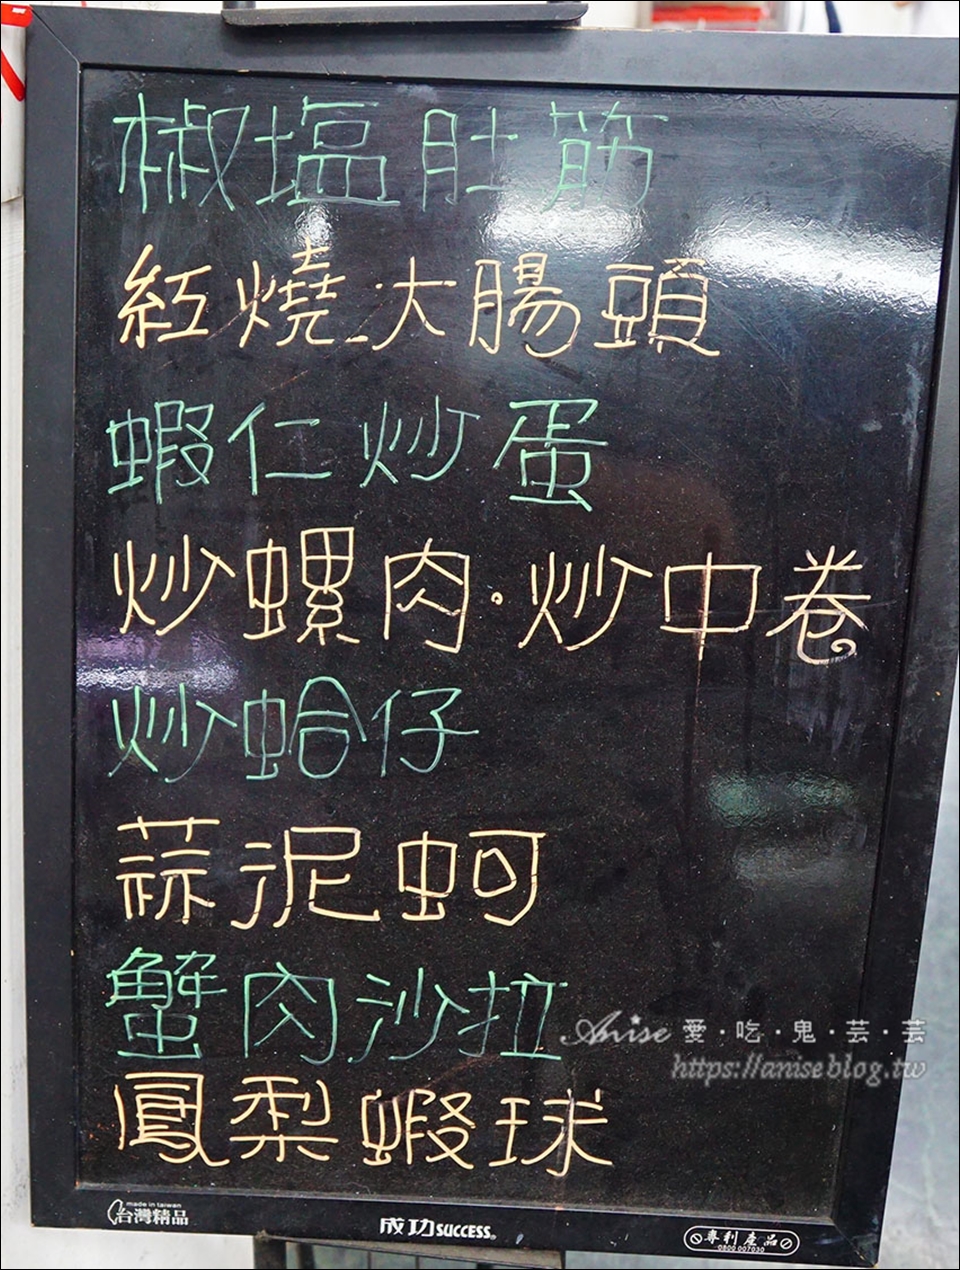 椒塩肚筋
紅燒大腸頭
蝦仁炒蛋
炒螺肉.炒中卷
炒蛤仔
蒜泥蚵
蟹肉沙拉
Anise 愛·吃·鬼·芸·芸
https://aniseblog.tw
鳳梨蝦球
made in taiwan
台灣精品
成功SUCCESS®
專利產品
0800 007030